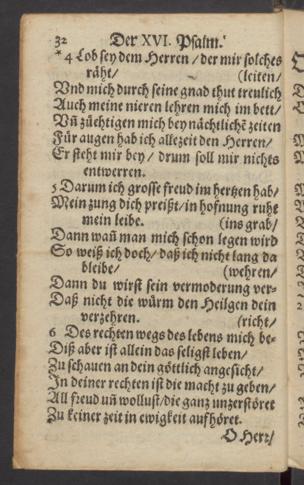 32 Der XVI. Psalm.
* 4 Lob sey dem Herren / der mir solches
räht / (leiten /
Vnd mich durch seine gnad thut treulich
Auch meine nieren lehren mich im bett /
Vñ züchtigen mich bey nächtlichẽ zeiten
Für augen hab ich allezeit den Herren /
Er steht mir bey / drum soll mir nichts
entwerren.
5 Darum ich grosse freud im hertzen hab /
Mein zung dich preißt / in hofnung ruht
mein leibe. (ins grab /
Dann wañ man mich schon legen wird
So weiß ich doch / daß ich nicht lang da
bleibe / (wehren /
Dann du wirst sein vermoderung ver-
Daß nicht die würm den Heilgen dein
verzehren. (richt /
6 Des rechten wegs des lebens mich be-
Diß aber ist allein das seligst leben /
Zu schauen an dein göttlich angesicht /
In deiner rechten ist die macht zu geben /
All freud uñ wollust / die ganz unzerstöret
Zu keiner zeit in ewigkeit aufhöret.
O Herr /